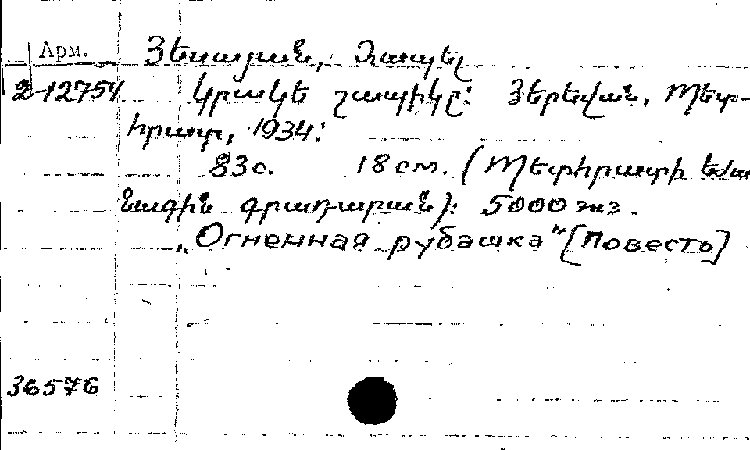 Арм.
Յեսայան, Հասպել
2-12754
Կրակե շապիկը: Յերեվան, Պետ-
հրատ, 1934:
83с. 18 см. (Պետհրատի եժա
նագին գրադարան): 5000 экз.
„Огненная рубашка" [Повесть]
36576